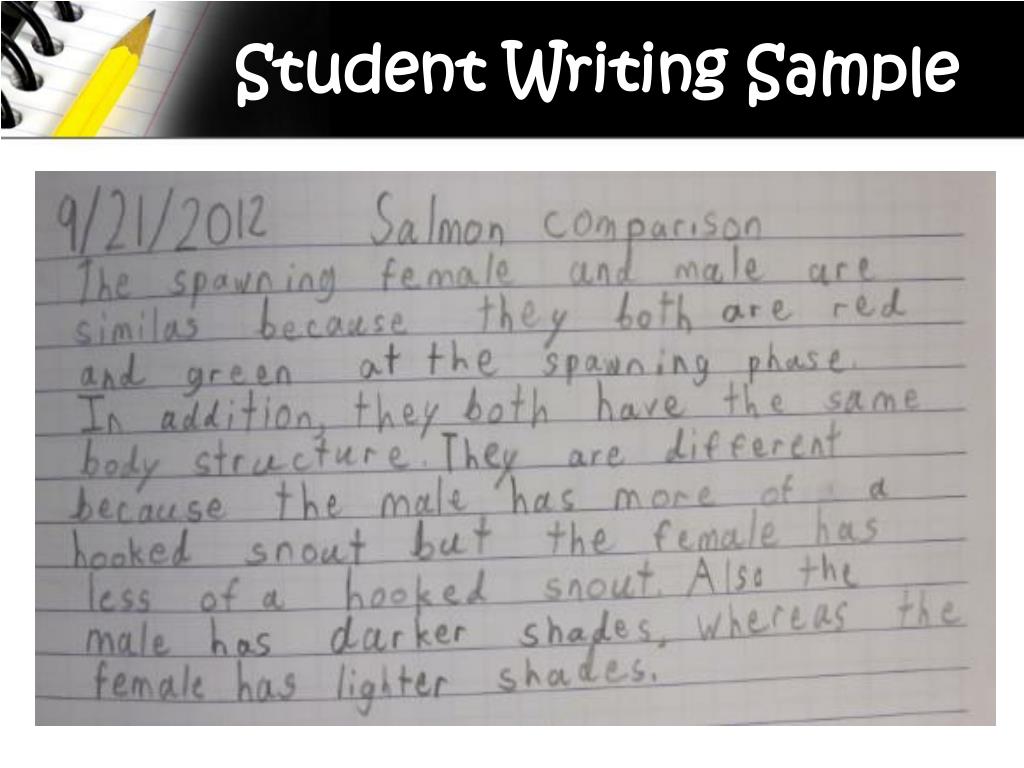 Student Writing Sample
9/21/2012 Salmon comparison
The spawning female and male are
similas because they both are red
and green at the spawning phase.
In addition, they both have the same
body structure. They are different
because the male has more of a
hooked snout but the female has
less of a hooked snout. Also the
male has darker shades, whereas the
female has lighter shades.